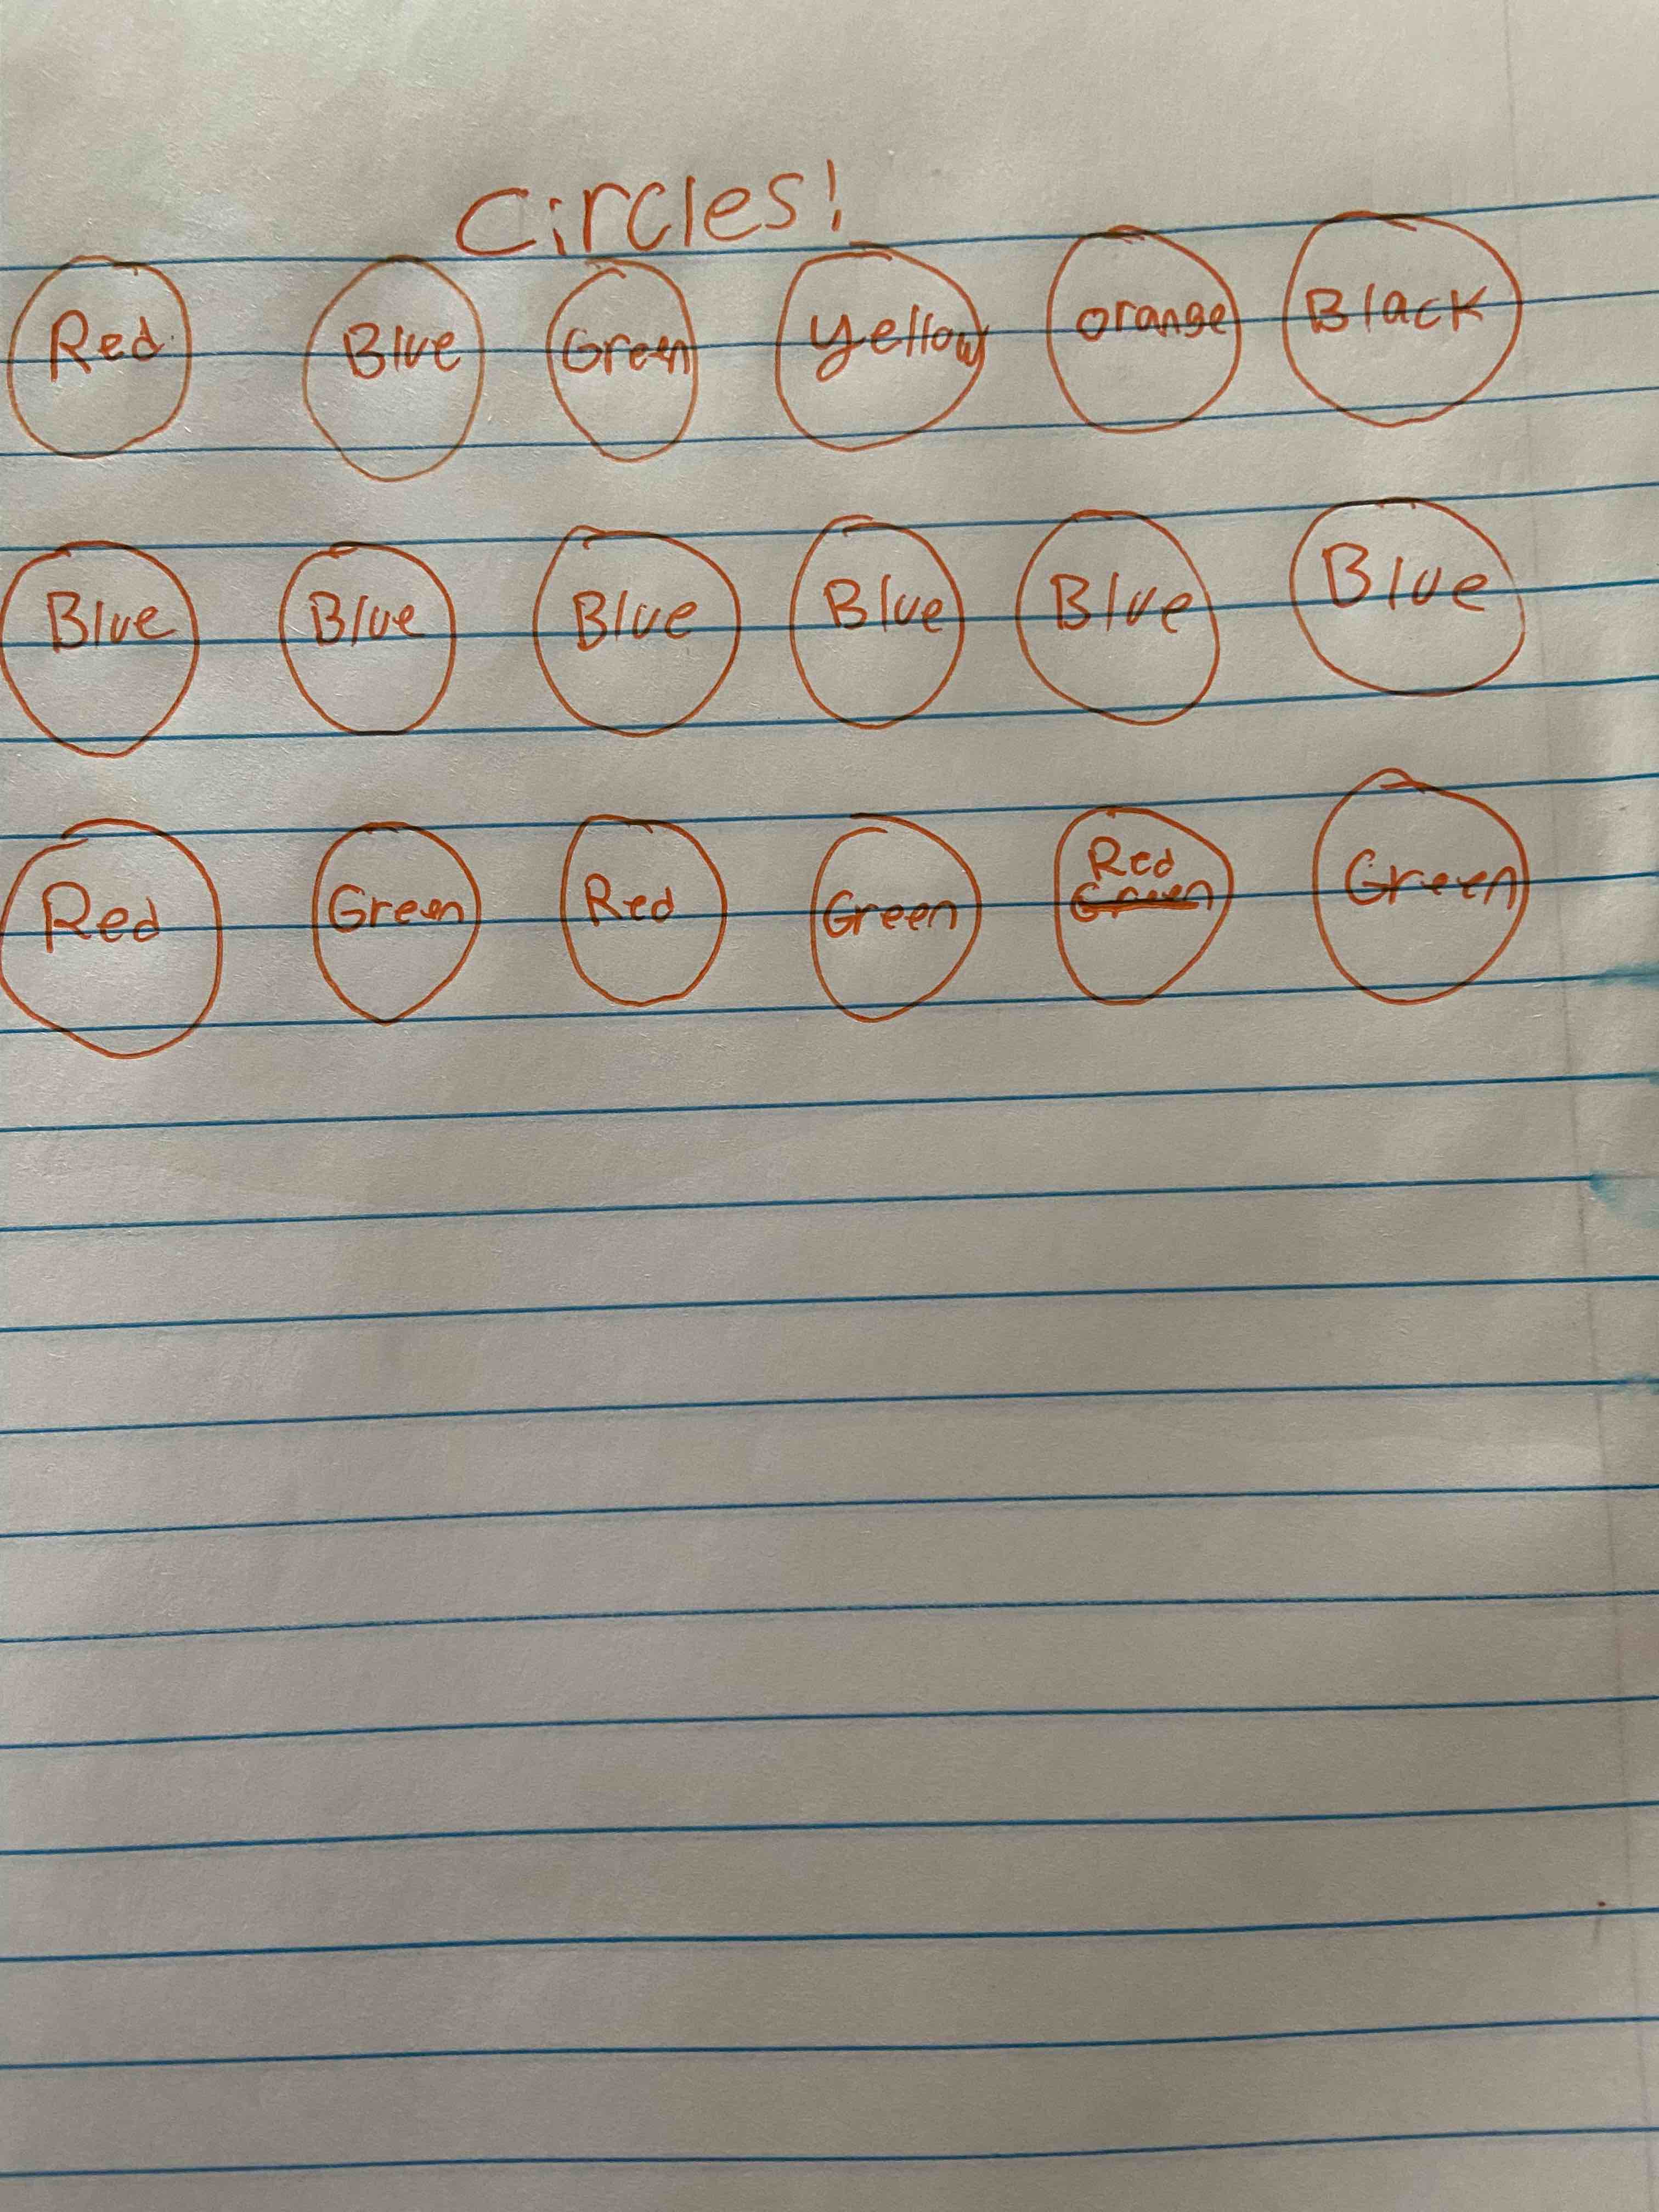 Circles!
Red Blue Green yellow orange Black
Blue Blue Blue Blue Blue Blue
Red Green Red Green Red Green Green